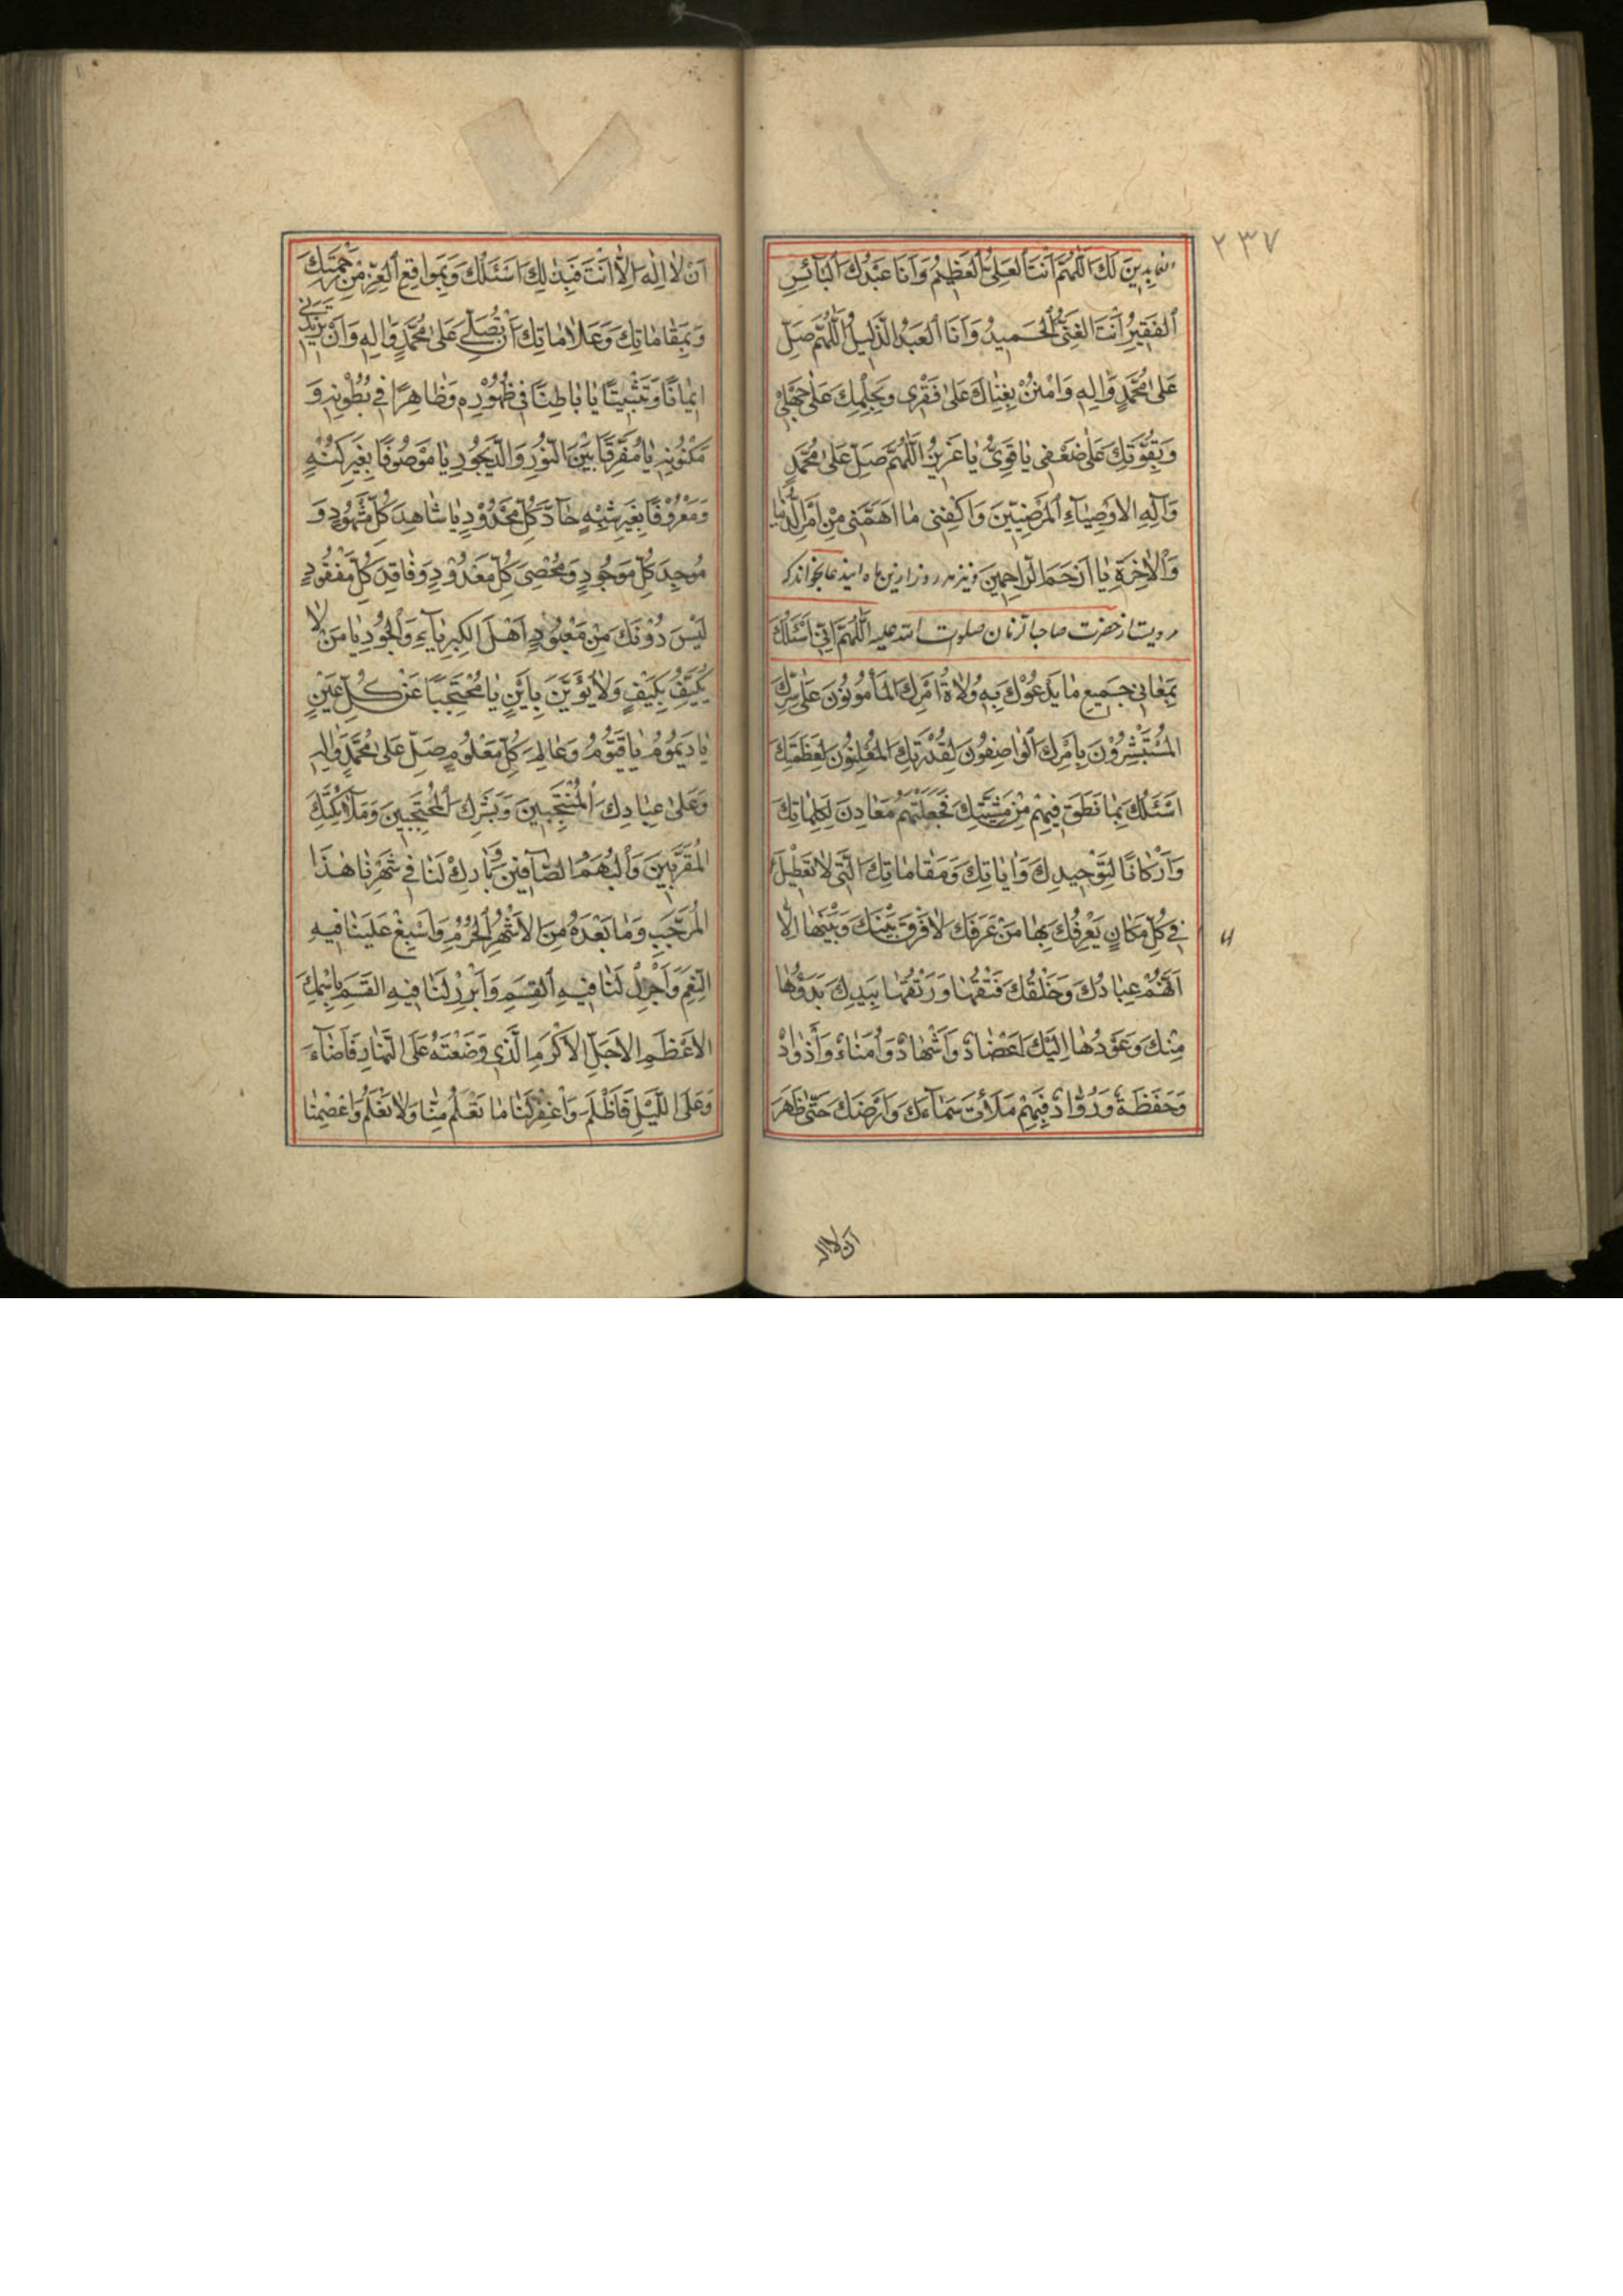 ۲۳۷
العابِدينَ لَكَ اَللّٰهُمَّ اَنْتَ العَلِىُّ العَظيمُ وَاَنَا عَبْدُكَ البَآئِسِ
الفَقيرُ اَنْتَ الغَنِىُّ الحَميدُ وَاَنَا العَبدُ الذَّليلُ اَللّٰهُمَّ صَلِّ
عَلىٰ مُحَمَّدٍ وَاٰلِهِ وَامْنُنْ بِغِنٰاكَ عَلىٰ فَقْرى وَبِحِلْمِكَ عَلىٰ جَهْلى
وَبِقُوَّتِكَ عَلىٰ ضَعْفى يٰا قَوِىُّ يٰا عَزيزُ اَللّٰهُمَّ صَلِّ عَلىٰ مُحَمَّدٍ
وَآلِهِ الاَوصِيٰآءِ المَرْضِيّينَ وَاكْفِنى مٰا اَهَمَّنى مِنْ اَمْرِ الدُّنْيٰا
وَالْاٰخِرَةِ يٰا اَرْحَمَ الرّٰاحِمينَ ونيز در هر روز ازين ماه اين دعا بخواند كه
مرويست از حضرت صاحب الزمان صلوات الله عليه اَللّٰهُمَّ اِنّى اَسْئَلُكَ
بِمَعٰانى جَميعِ مٰا يَدْعُوْكَ بِهِ وُلاٰةُ اَمْرِكَ المَأْمُونُونَ عَلىٰ سِرِّكَ
المُسْتَبْشِرُوْنَ بِاَمْرِكَ الوٰاصِفُونَ لِقُدْرَتِكَ المُعْلِنُونَ لِعَظَمَتِكَ
اَسْئَلُكَ بِمٰا نَطَقَ فيهِمْ مِنْ مَشِيَّتِكَ فَجَعَلْتَهُمْ مَعٰادِنَ لِكَلِمٰاتِكَ
وَاَرْكٰانًا لِتَوْحيدِكَ وَاٰيٰاتِكَ وَمَقٰامٰاتِكَ الَّتى لاٰ تَعْطيلَ لَهٰا
فى كُلِّ مَكٰانٍ يَعْرِفُكَ بِهٰا مَنْ عَرَفَكَ لاٰ فَرْقَ بَيْنَكَ وَبَيْنَهٰا اِلاّٰ
اَنَّهُمْ عِبٰادُكَ وَخَلْقُكَ فَتْقُهٰا وَرَتْقُهٰا بِيَدِكَ بَدْؤُهٰا
مِنْكَ وَعَوْدُهٰا اِلَيْكَ اَعْضٰادٌ وَاَشْهٰادٌ وَاُمَنٰاءُ وَاَذْوٰادٌ
وَحَفَظَةٌ وَرُوّٰادٌ فَبِهِمْ مَلَأْتَ سَمٰآءَكَ وَاَرْضَكَ حَتّىٰ ظَهَرَ
ان لا اله
اَنْ لاٰ اِلٰهَ اِلاّٰ اَنْتَ فَبِذٰلِكَ اَسْئَلُكَ وَبِمَوٰاقِعِ العِزِّ مِنْ رَحْمَتِكَ
وَبِمَقٰامٰاتِكَ وَعَلاٰمٰاتِكَ اَنْ تُصَلّىَ عَلىٰ مُحَمَّدٍ وَاٰلِهِ وَاَنْ تَزيدَنى
ايمٰانًا وَتَثْبيتًا يٰا بٰاطِنًا فى ظُهُوْرِه وَظٰاهِرًا فى بُطُوْنِهِ وَ
مَكْنُوْنِهِ يٰا مُفَرِّقًا بَيْنَ النُّورِ وَالدَّيْجُورِ يٰا مَوْصُوفًا بِغَيرِ كُنْهٍ
وَمَعْرُوْفًا بِغَيرِ شِبْهٍ حٰآدَّ كُلِّ مَحْدُوْدٍ يٰا شٰاهِدَ كُلِّ مَشْهُودٍ وَ
مُوجِدَ كُلِّ مَوجُودٍ وَمُحْصِىَ كُلِّ مَعْدُوْدٍ وَفٰاقِدَ كُلِّ مَفْقُودٍ
لَيْسَ دُوْنَكَ مِنْ مَعْبُوْدٍ اَهْلَ الكِبرِيٰآءِ وَالْجُوْدِ يٰا مَنْ لاٰ
يُكَيَّفُ بِكَيْفٍ وَلاٰ يُؤَيَّنُ بِاَيْنٍ يٰا مُحْتَجِبًا عَنْ كُلِّ عَيْنٍ
يٰا دَيْمُومُ يٰا قَيُّوْمُ وَعٰالِمَ كُلِّ مَعْلُومٍ صَلِّ عَلىٰ مُحَمَّدٍ وَاٰلِهِ
وَعَلىٰ عِبٰادِكَ المُنْتَجَبينَ وَبَشَرِكَ المُحْتَجِبينَ وَمَلآئِكَتِكَ
المُقَرَّبينَ وَالْبُهَمِ الصّٰآفّينَ وَبٰارِكْ لَنٰا فى شَهْرِنٰا هٰذَا
المُرَجَّبِ وَمٰا بَعْدَهُ مِنَ الاَشْهُرِ الحُرُمِ وَاَسْبِغْ عَلَيْنٰا فيهِ
النِّعَمَ وَاَجْزِلْ لَنٰا فيهِ القِسَمَ وَاَبْرِزْ لَنٰا فيهِ القَسَمَ بِاسْمِكَ
الاَعْظَمِ الاَجَلِّ الاَكْرَمِ الَّذى وَضَعْتَهُ عَلَى النَّهٰارِ فَاَضٰآءَ
وَعَلَى اللَّيْلِ فَاَظْلَمَ وَاغْفِرْ لَنٰا مٰا تَعْلَمُ مِنّٰا وَلاٰ نَعْلَمُ وَاعْصِمْنٰا